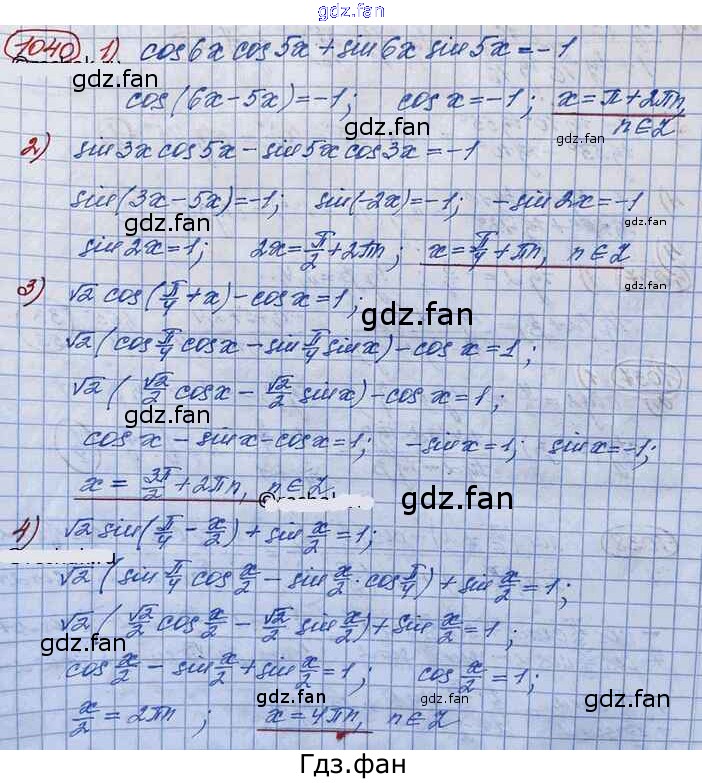 gdz.fan
1040 1) cos6x cos5x + sin6x sin5x = -1
gdz.fan
cos(6x-5x)=-1; cos x=-1; x=π+2πn,
gdz.fan
gdz.fan
n∈Z
2) sin3x cos5x - sin5x cos3x = -1
sin(3x-5x)=-1; sin(-2x)=-1; -sin2x=-1
gdz.fan
gdz.fan
sin2x=1; 2x=π/2+2πn; x=π/4+πn, n∈Z
gdz.fan
3) √2 cos(π/4+x)-cosx=1;
gdz.fan
√2(cosπ/4 cosx - sinπ/4 sinx)-cosx=1;
√2(√2/2 cosx - √2/2 sinx)-cosx=1;
gdz.fan
cosx - sinx - cosx=1; -sinx=1; sinx=-1;
x=3π/2+2πn, n∈Z
gdz.fan
4) √2 sin(π/4 - x/2) + sin x/2 = 1;
√2(sin π/4 cos x/2 - sin x/2 · cos π/4) + sin x/2 = 1;
√2(√2/2 cos x/2 - √2/2 sin x/2) + sin x/2 = 1;
gdz.fan
gdz.fan
cos x/2 - sin x/2 + sin x/2 = 1; cos x/2 = 1;
gdz.fan
gdz.fan
gdz.fan
x/2 = 2πn; x=4πn, n∈Z
Гдз.фан